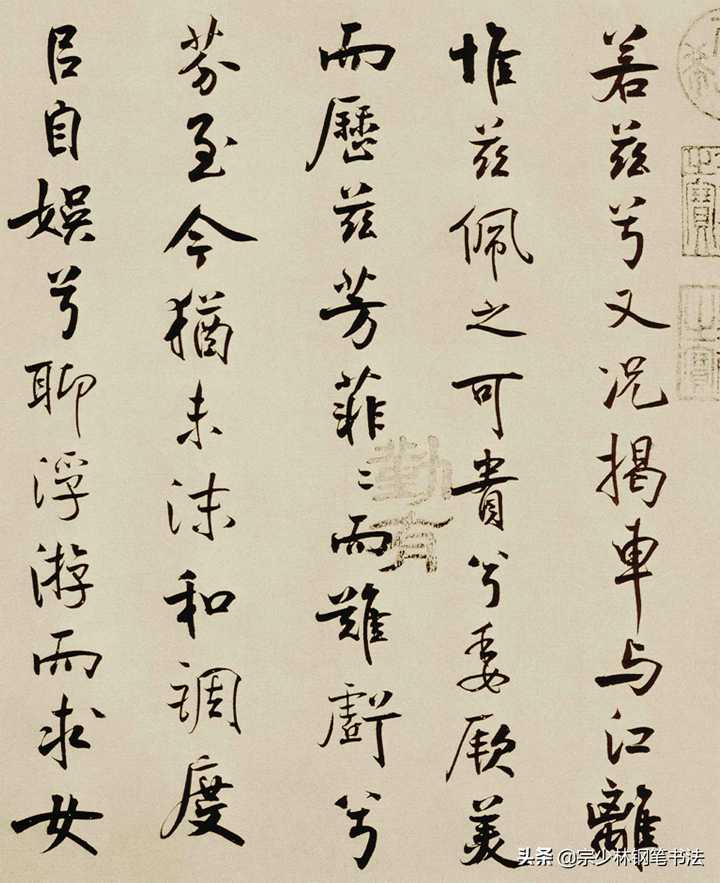 若兹兮又况揭車与江離
惟兹佩之可貴兮委厥美
而歷兹芳菲〻而難虧兮
芬至今猶未沬和調度
㠯自娛兮聊浮游而求女
勤有
头条 @宗少林钢笔书法